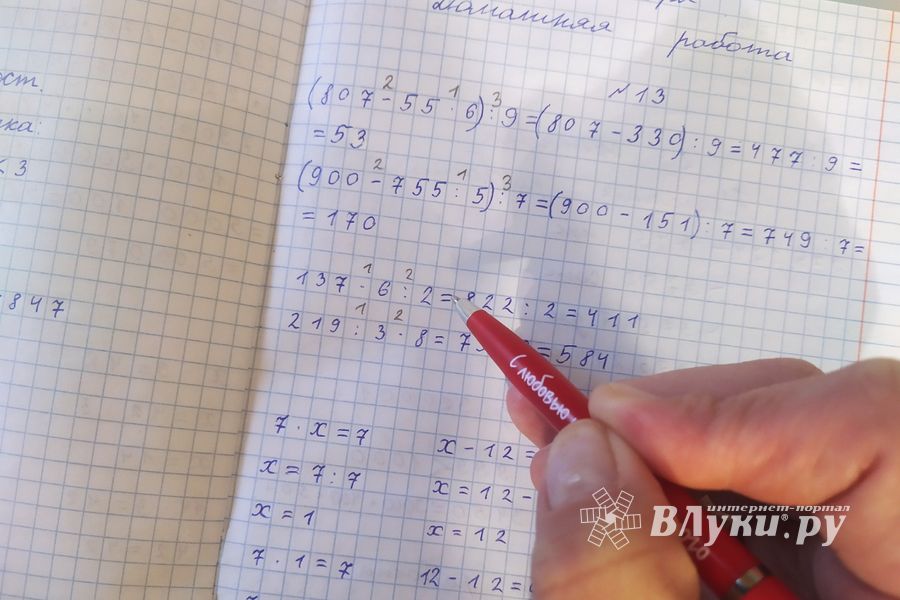 Домашняя
работа
№13
(807 - 55 · 6) : 9 = (807 - 330) : 9 = 477 : 9 =
= 53
(900 - 755 : 5) : 7 = (900 - 151) : 7 = 749 : 7 =
= 170
137 · 6 : 2 = 822 : 2 = 411
219 : 3 · 8 = 7 = 584
7 · x = 7
x = 7 : 7
x = 1
7 · 1 = 7
x - 12 =
x = 12 -
x = 12
12 - 12 =
ост.
ка:
3
847
С любовью
интернет-портал
ВЛуки.ру